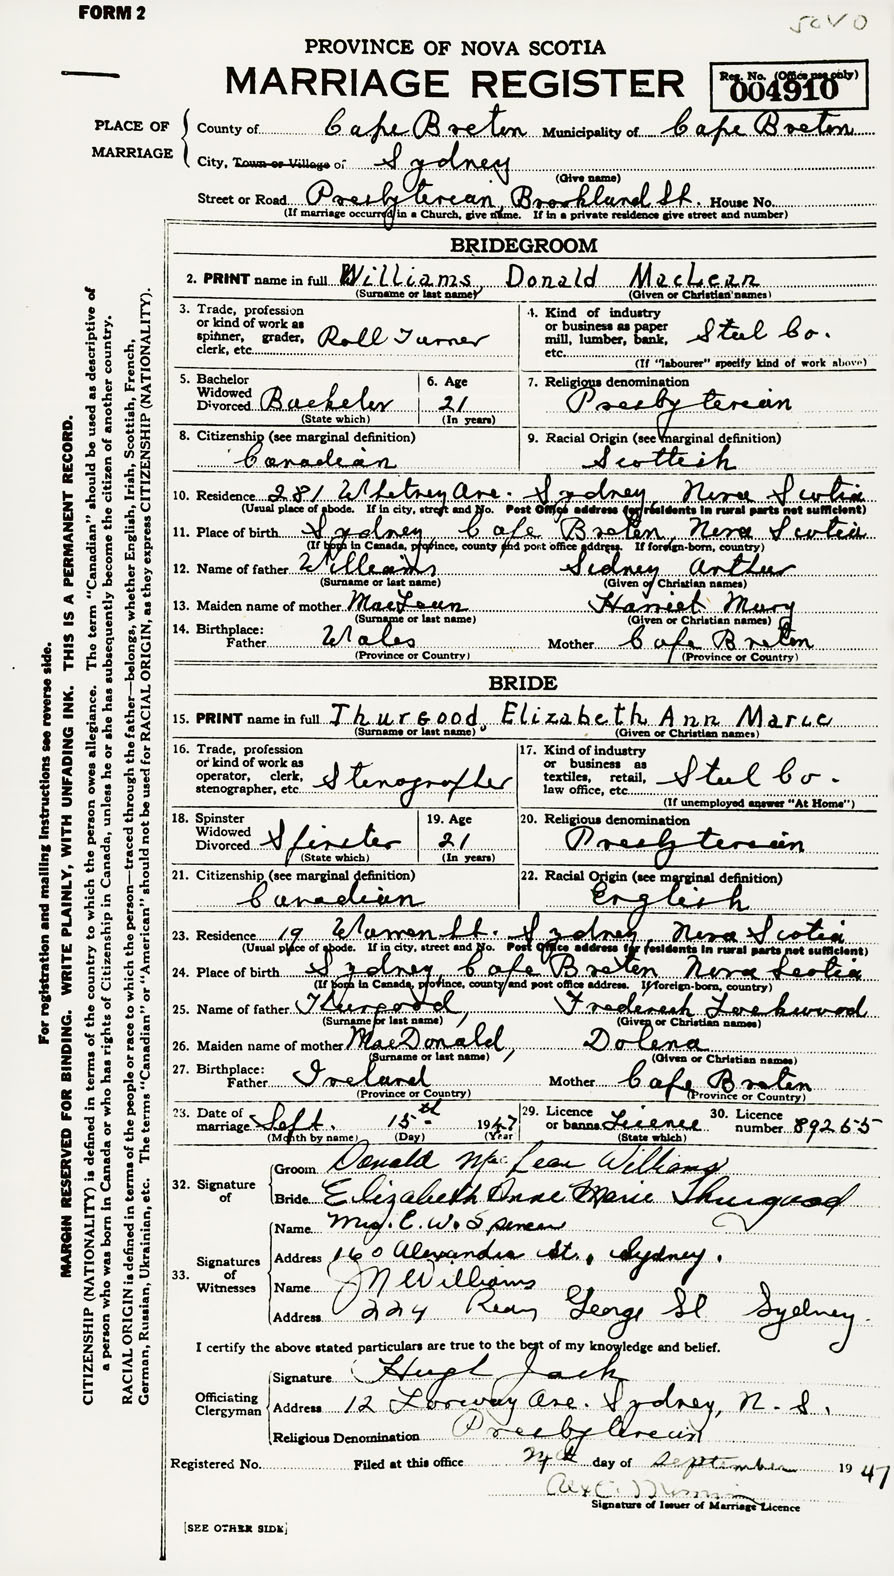 FORM 2
PROVINCE OF NOVA SCOTIA
MARRIAGE REGISTER
Reg. No. (Office use only)
004910
PLACE OF MARRIAGE
County of Cape Breton Municipality of Cape Breton
City, Town or Village of Sydney
(Give name)
Street or Road Presbyterian, Brookland St. House No.
(If marriage occurred in a Church, give name. If in a private residence give street and number)
BRIDEGROOM
2. PRINT name in full Williams, Donald MacLean
(Surname or last name) (Given or Christian names)
3. Trade, profession or kind of work as spinner, grader, clerk, etc. Roll Turner
4. Kind of industry or business as paper mill, lumber, bank, etc. Steel Co.
(If "labourer" specify kind of work above)
5. Bachelor Widowed Divorced Bachelor
(State which)
6. Age 21
(In years)
7. Religious denomination
Presbyterian
8. Citizenship (see marginal definition)
Canadian
9. Racial Origin (see marginal definition)
Scottish
10. Residence 281 Whitney Ave. Sydney, Nova Scotia
(Usual place of abode. If in city, street and No. Post Office address for residents in rural parts not sufficient)
11. Place of birth Sydney Cape Breton, Nova Scotia
(If born in Canada, province, county and post office address. If foreign-born, country)
12. Name of father Williams Sidney Arthur
(Surname or last name) (Given or Christian names)
13. Maiden name of mother MacLean Harriet Mary
(Surname or last name) (Given or Christian names)
14. Birthplace: Father Wales Mother Cape Breton
(Province or Country) (Province or Country)
BRIDE
15. PRINT name in full Thurgood, Elizabeth Ann Marie
(Surname or last name) (Given or Christian names)
16. Trade, profession or kind of work as operator, clerk, stenographer, etc. Stenographer
17. Kind of industry or business as textiles, retail, law office, etc. Steel Co.
(If unemployed answer "At Home")
18. Spinster Widowed Divorced Spinster
(State which)
19. Age 21
(In years)
20. Religious denomination
Presbyterian
21. Citizenship (see marginal definition)
Canadian
22. Racial Origin (see marginal definition)
English
23. Residence 19 Warren St. Sydney, Nova Scotia
(Usual place of abode. If in city, street and No. Post Office address for residents in rural parts not sufficient)
24. Place of birth Sydney, Cape Breton Nova Scotia
(If born in Canada, province, county and post office address. If foreign-born, country)
25. Name of father Thurgood, Frederick Lockwood
(Surname or last name) (Given or Christian names)
26. Maiden name of mother MacDonald, Dolena
(Surname or last name) (Given or Christian names)
27. Birthplace: Father Ireland Mother Cape Breton
(Province or Country) (Province or Country)
23. Date of marriage Sept. 15th 1947 29. Licence or banns Licence 30. Licence number 89265
(Month by name) (Day) (Year) (State which)
32. Signature of
Groom Donald MacLean Williams
Bride Elizabeth Anne Marie Thurgood
33. Signatures of Witnesses
Name Mrs. E. W. Spencer
Address 160 Alexandra St., Sydney.
Name J N Williams
Address 224 Rear George St Sydney.
I certify the above stated particulars are true to the best of my knowledge and belief.
Officiating Clergyman
Signature Hugh Jack
Address 12 Lorway Ave. Sydney, N. S.
Religious Denomination Presbyterian
Registered No. Filed at this office 24th day of September 1947
Signature of Issuer of Marriage Licence
[SEE OTHER SIDE]
For registration and mailing instructions see reverse side.
MARGIN RESERVED FOR BINDING. WRITE PLAINLY, WITH UNFADING INK. THIS IS A PERMANENT RECORD.
CITIZENSHIP (NATIONALITY) is defined in terms of the country to which the person owes allegiance. The term "Canadian" should be used as descriptive of
a person who was born in Canada or who has rights of Citizenship in Canada, unless he or she has subsequently become the citizen of another country.
RACIAL ORIGIN is defined in terms of the people or race to which the person—traced through the father—belongs, whether English, Irish, Scottish, French,
German, Russian, Ukrainian, etc. The terms "Canadian" or "American" should not be used for RACIAL ORIGIN, as they express CITIZENSHIP (NATIONALITY).